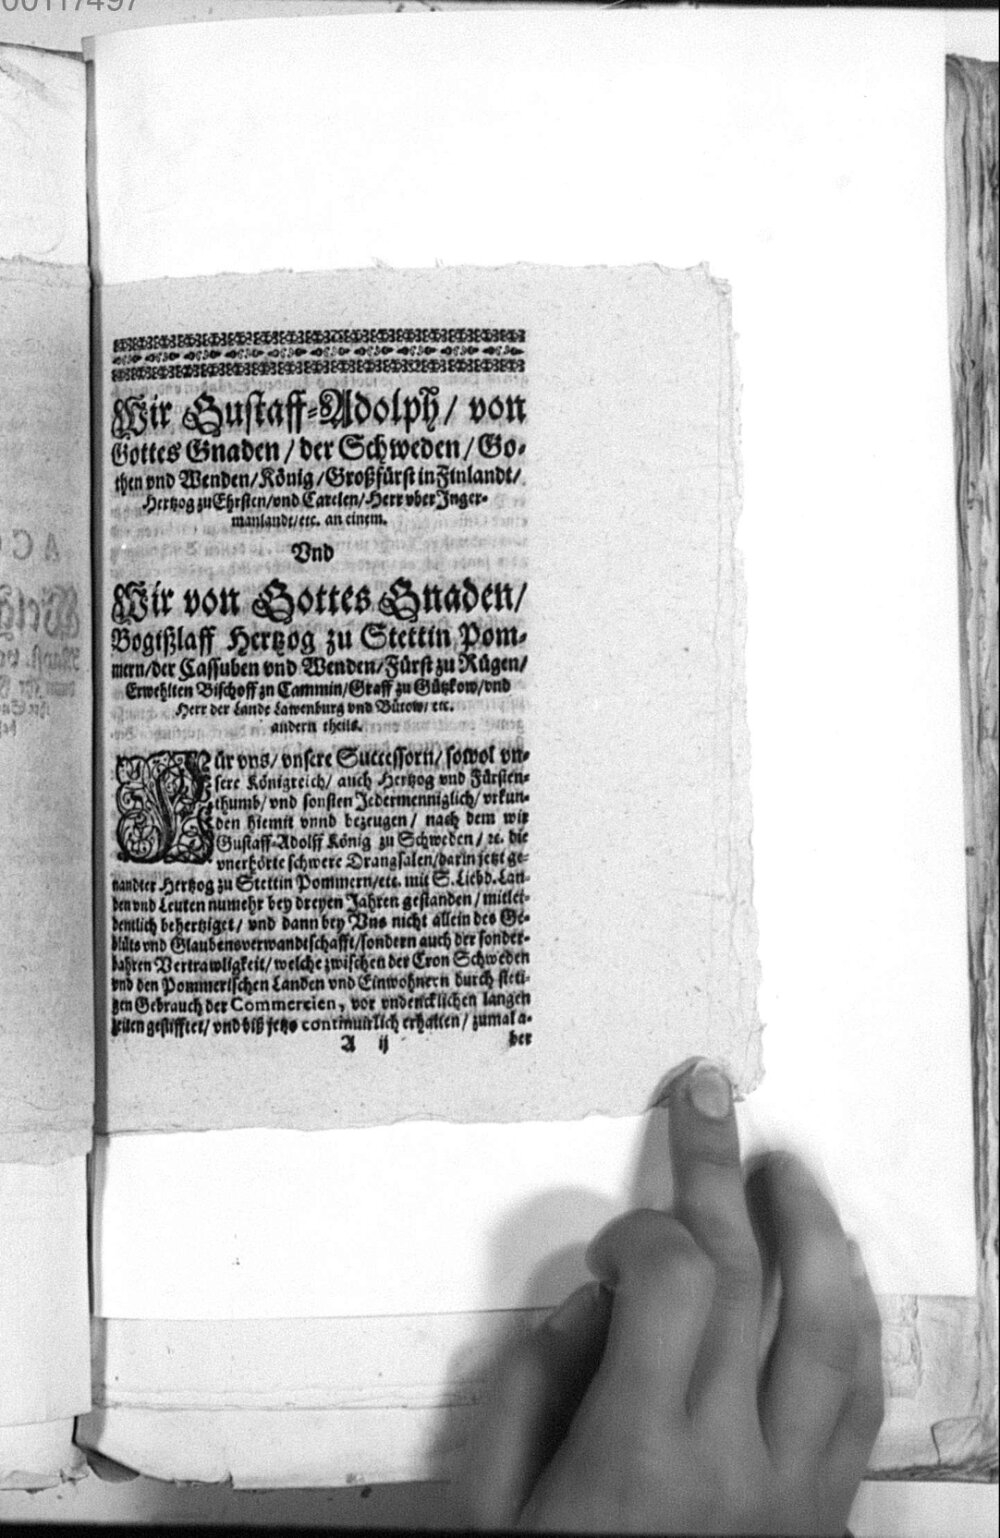 00117497
Wir Gustaff-Adolph/ von
Gottes Gnaden/ der Schweden/ Go-
then vnd Wenden/ König/ Großfürst in Finlandt/
Hertzog zu Ehesten/ vnd Carelen/ Herr vber Inger-
manlandt/ etc. an einem.
Vnd
Wir von Gottes Gnaden/
Bogißlaff Hertzog zu Stettin Pom-
mern/ der Cassuben vnd Wenden/ Fürst zu Rügen/
Erwehlten Bischoff zu Cammin/ Graff zu Gützkow/ vnd
Herr der Lande Lawenburg vnd Bütow/ etc.
andern theils.
Für vns/ vnsere Successorn/ sowol vn-
sere Königreich/ auch Hertzog vnd Fürsten-
thumb/ vnd sonsten Jedermenniglich/ vrkun-
den hiemit vnnd bezeugen/ nach dem wir
Gustaff-Adolff König zu Schweden/ ꝛc. die
vnerhörte schwere Drangsalen/ darin jetzt ge-
nandter Hertzog zu Stettin Pommern/ etc. mit S. Liebd. Lan-
den vnd Leuten numehr bey dreyen Jahren gestanden/ mitlei-
dentlich behertziget/ vnd dann bey Vns nicht allein des Ge-
blüts vnd Glaubensverwandtschafft/ sondern auch der sonder-
bahren Vertrawligkeit/ welche zwischen der Cron Schweden
vnd den Pommerischen Landen vnd Einwohnern durch steti-
gen Gebrauch der Commercien, vor vndencklichen langen
zeiten gestifftet/ vnd biß jetzo continuirlich erhalten/ zumal a-
A ij ber